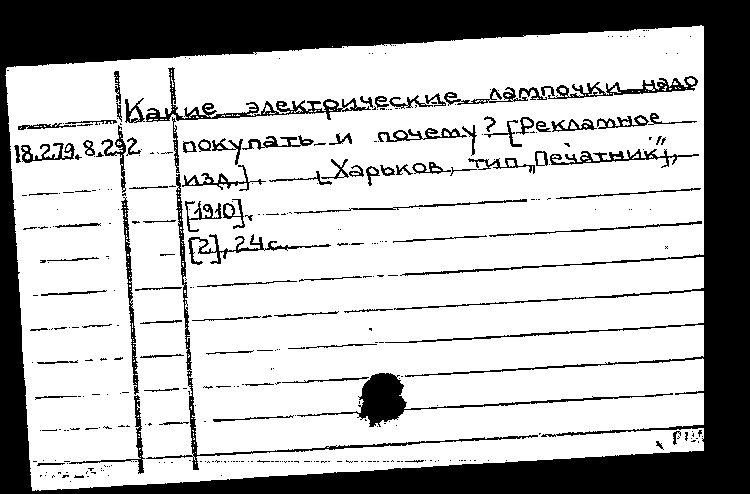 Какие электрические лампочки надо
18.279.8.292 покупать и почему? [Рекламное
изд.]. [Харьков, тип. „Печатник"],
[1910].
[2], 24 с.